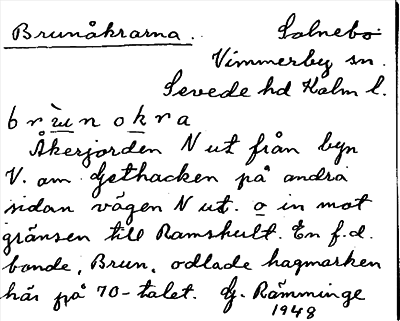 Brunåkrarna. Solnebo
Vimmerby sn.
Sevede hd Kalm l.
brùnokra
Åkerjorden N ut från byn
V. om Gethacken på andra
sidan vägen N ut. o in mot
gränsen till Ramshult. En f.d.
bonde, Brun, odlade hagmarken
här på 70-talet. G. Rämminge
1948